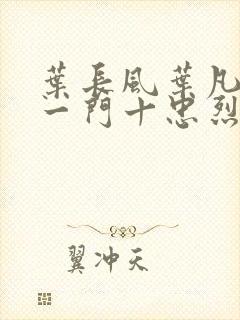 葉長風葉凡
一門十忠烈
翼冲天